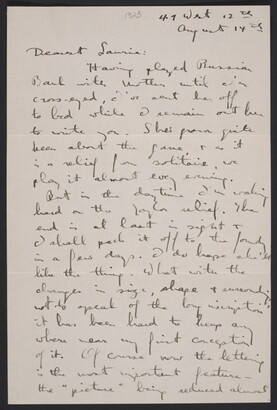 1323
47 West 12th
August 14th
Dearest Laurie:
Having played Russian
Bank with Mother until I'm
cross-eyed, I've sent her off
to bed while I remain out here
to write you. She's grown quite
keen about the game, & as it
is a relief from solitaire, we
play it almost every evening.
But in the daytime I'm working
hard on the Taylor relief. The
end is at last in sight &
I shall pack it off to the foundry
in a few days. I do hope she'll
like the thing. What with the
changes in size, shape & surroundings
not to speak of the long inscription
it has been hard to keep any
where near my first conception
of it. Of course now the lettering
is the most important feature –
the "picture" being reduced almost